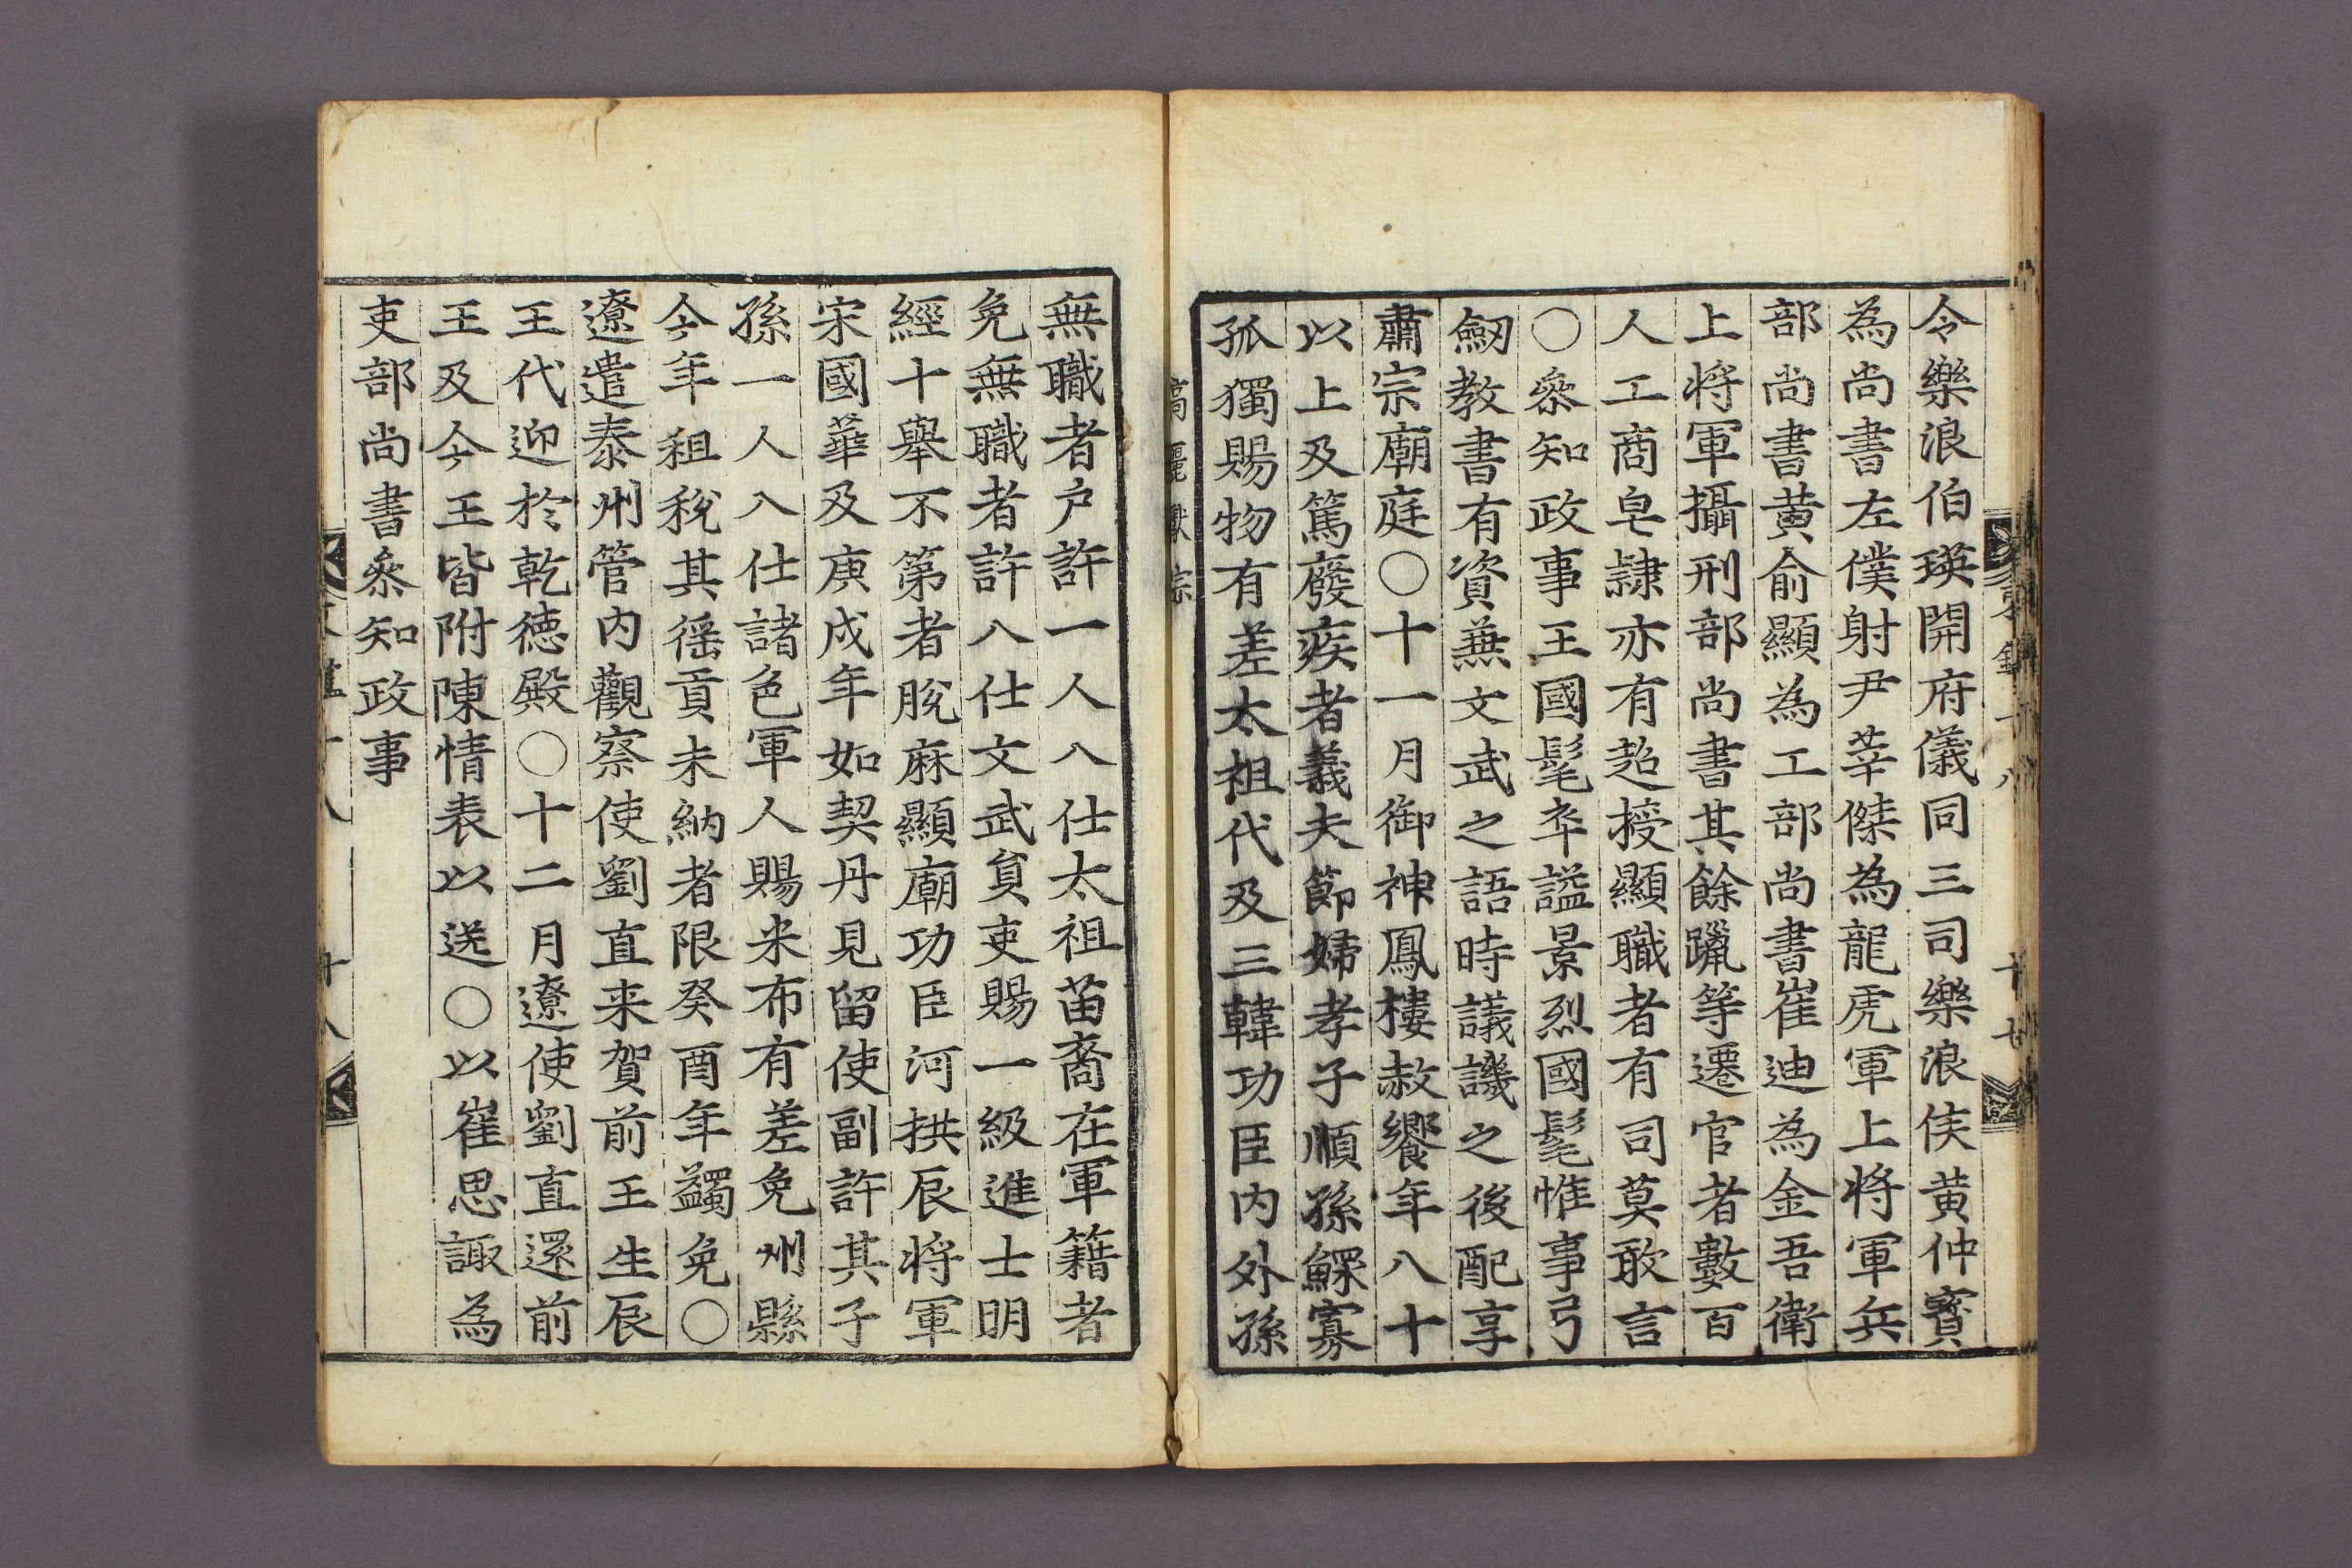 令樂浪伯瑛開府儀同三司樂浪侯黃仲寶
為尚書左僕射尹莘傑為龍虎軍上將軍兵
部尚書黃俞顯為工部尚書崔迪為金吾衛
上將軍攝刑部尚書其餘躐等遷官者數百
人工商皂隷亦有超授顯職者有司莫敢言
○叅知政事王國髦卒諡景烈國髦惟事弓
劒教書有資兼文武之語時議譏之後配享
肅宗廟庭○十一月御神鳳樓赦饗年八十
以上及篤廢疾者義夫節婦孝子順孫鰥寡
孤獨賜物有差太祖代及三韓功臣內外孫
高麗獻宗
無職者戶許一人入仕太祖苗裔在軍籍者
免無職者許入仕文武貟吏賜一級進士明
經十舉不第者脫麻顯廟功臣河拱辰將軍
宋國華及庚戌年如契丹見留使副許其子
孫一人入仕諸色軍人賜米布有差免州縣
今年租稅其徭貢未納者限癸酉年蠲免○
遼遣泰州管內觀察使劉直来賀前王生辰
王代迎於乾德殿○十二月遼使劉直還前
王及今王皆附陳情表以送○以崔思諏為
吏部尚書叅知政事